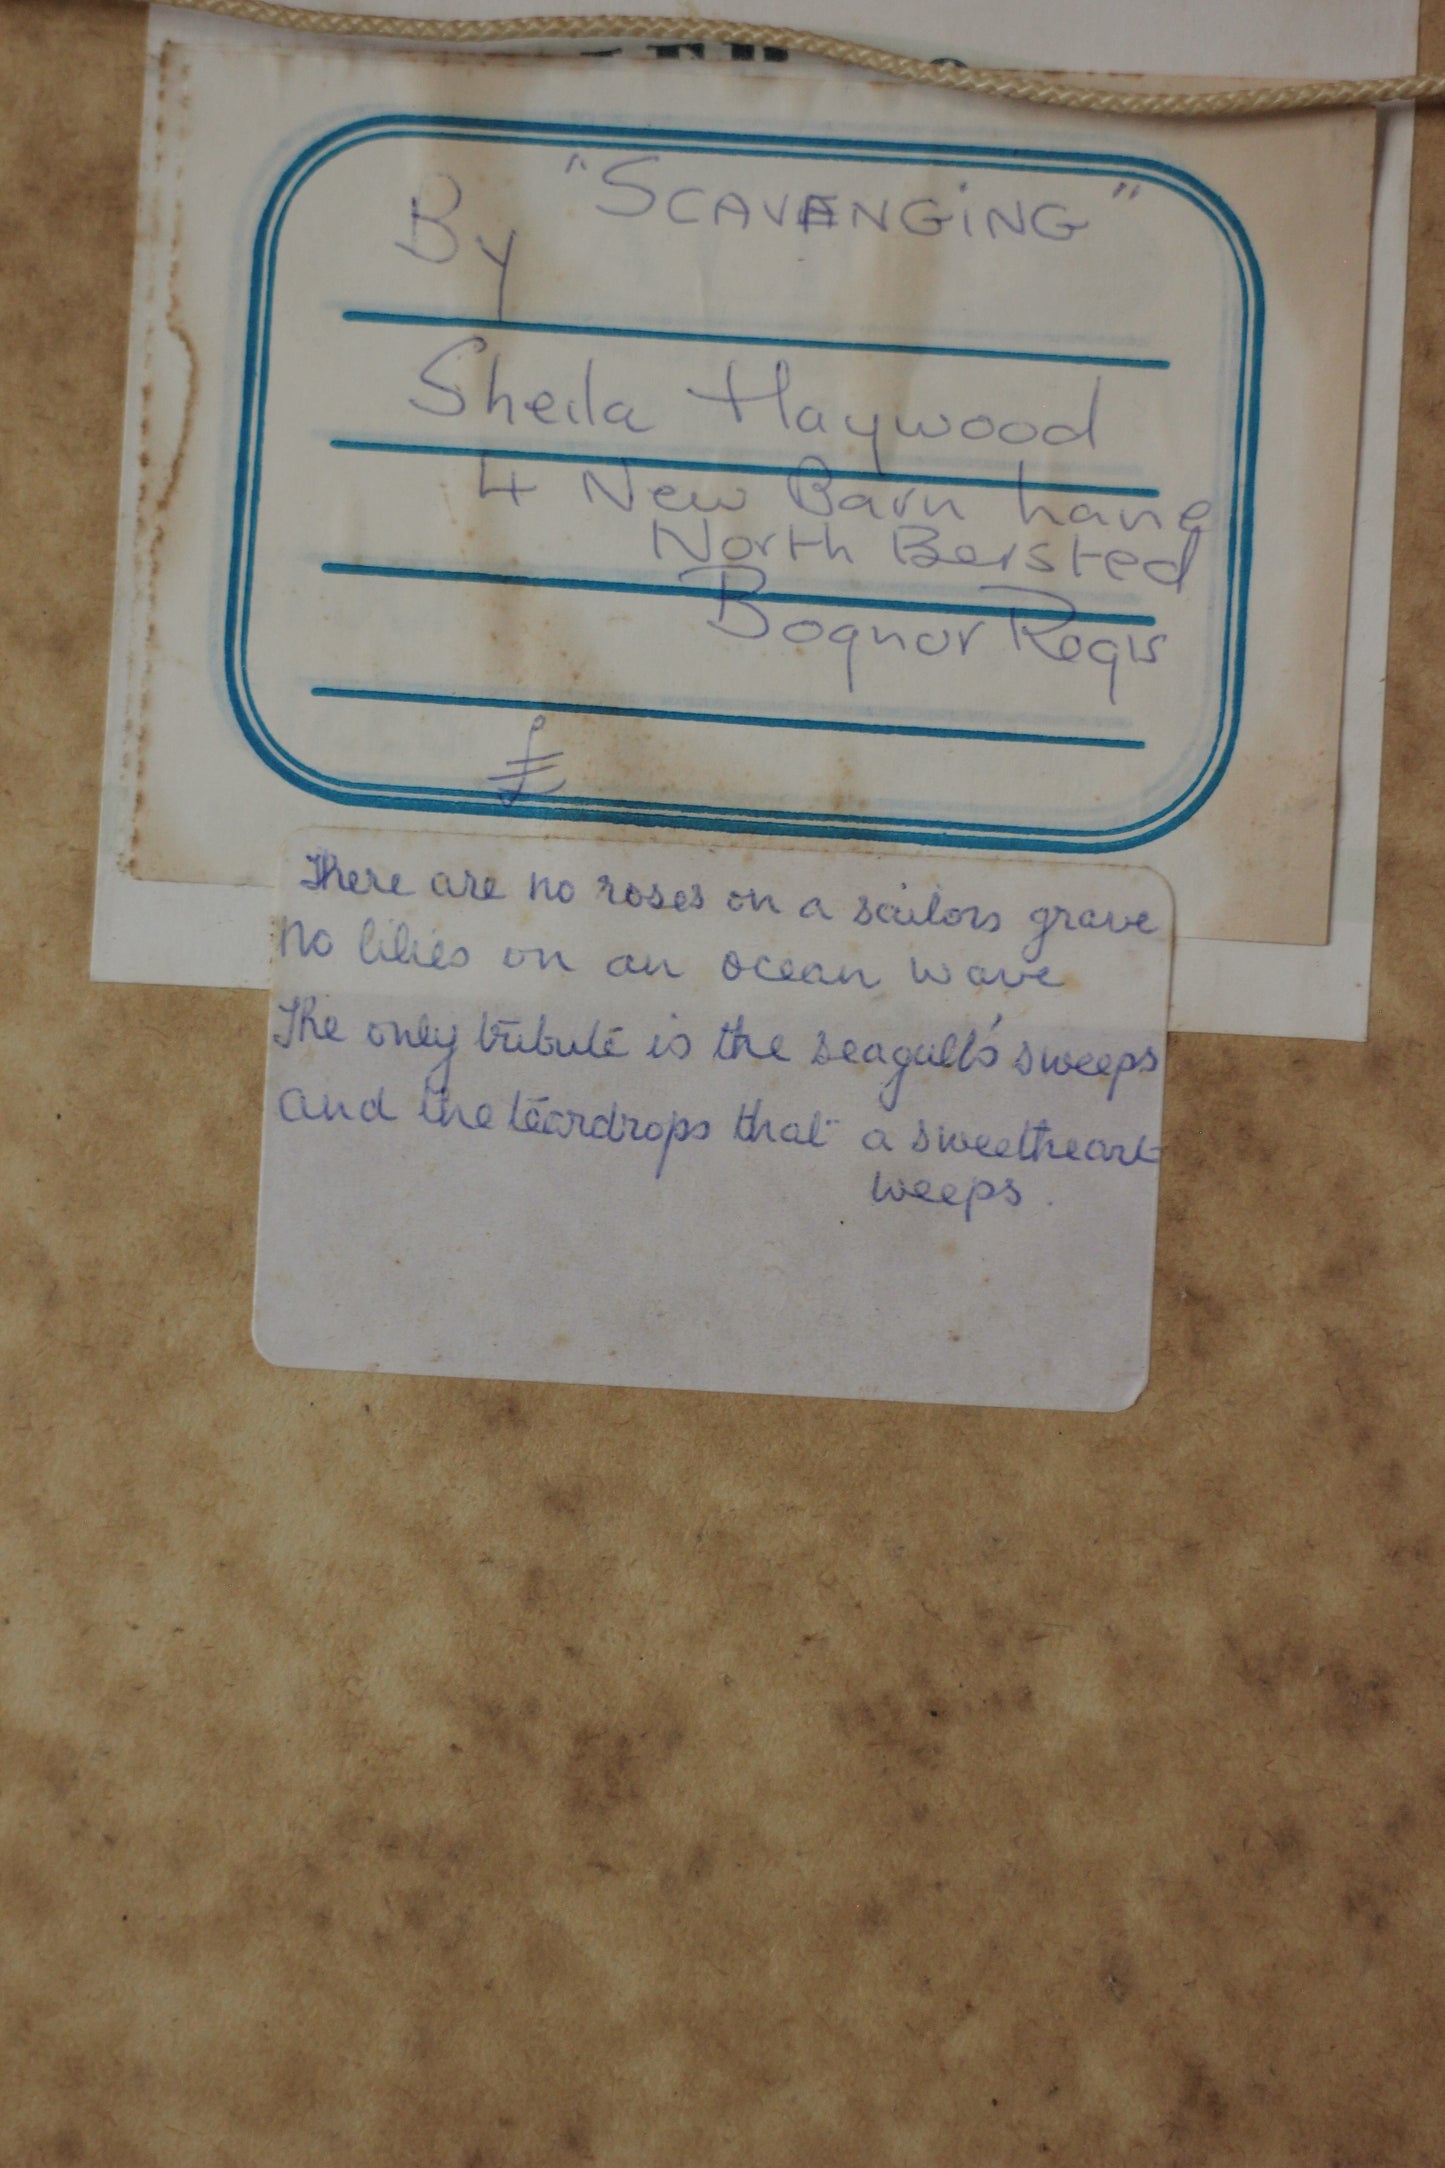 "SCAVENGING"
By
Sheila Haywood
4 New Barn Lane
North Bersted
Bognor Regis
£
There are no roses on a sailors grave
No lilies on an ocean wave
The only tribute is the seagulls' sweeps
and the teardrops that a sweetheart
weeps.